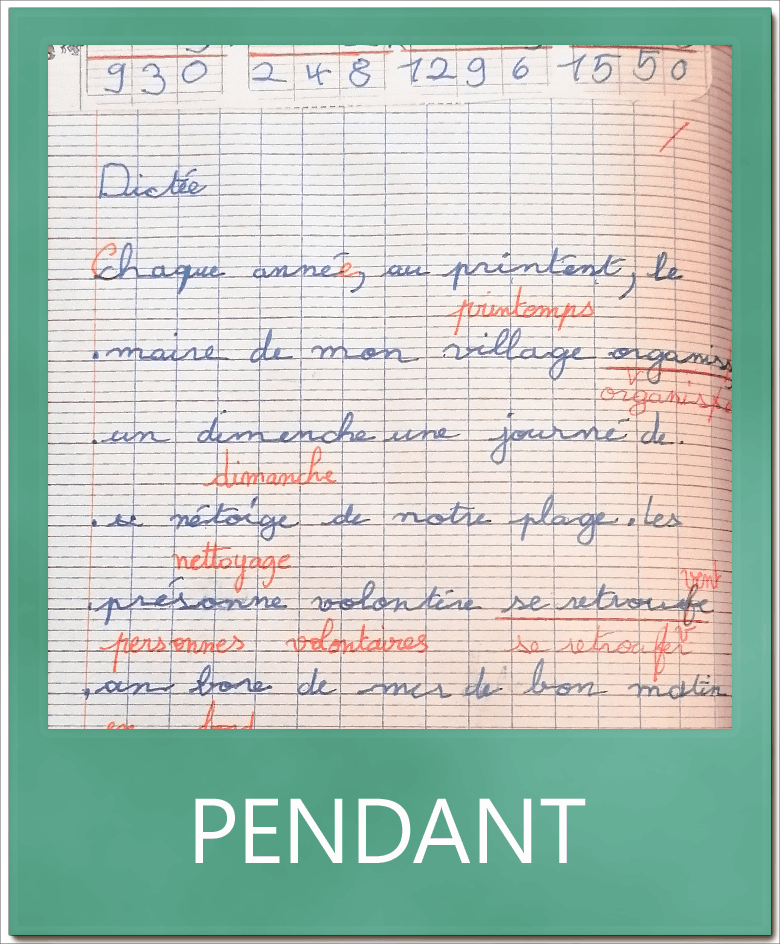 930 248 1296 1550
Dictée
Chaque année, au printent, le
printomps
.maire de mon village organiss
organise
.un dimenche une journé de.
dimanche
. nétoige de notre plage. les
nettoyage
vent
.présonne volontire se retroufe
personnes volontaires se retrou
.an bore de mer de bon matin
en bord
PENDANT